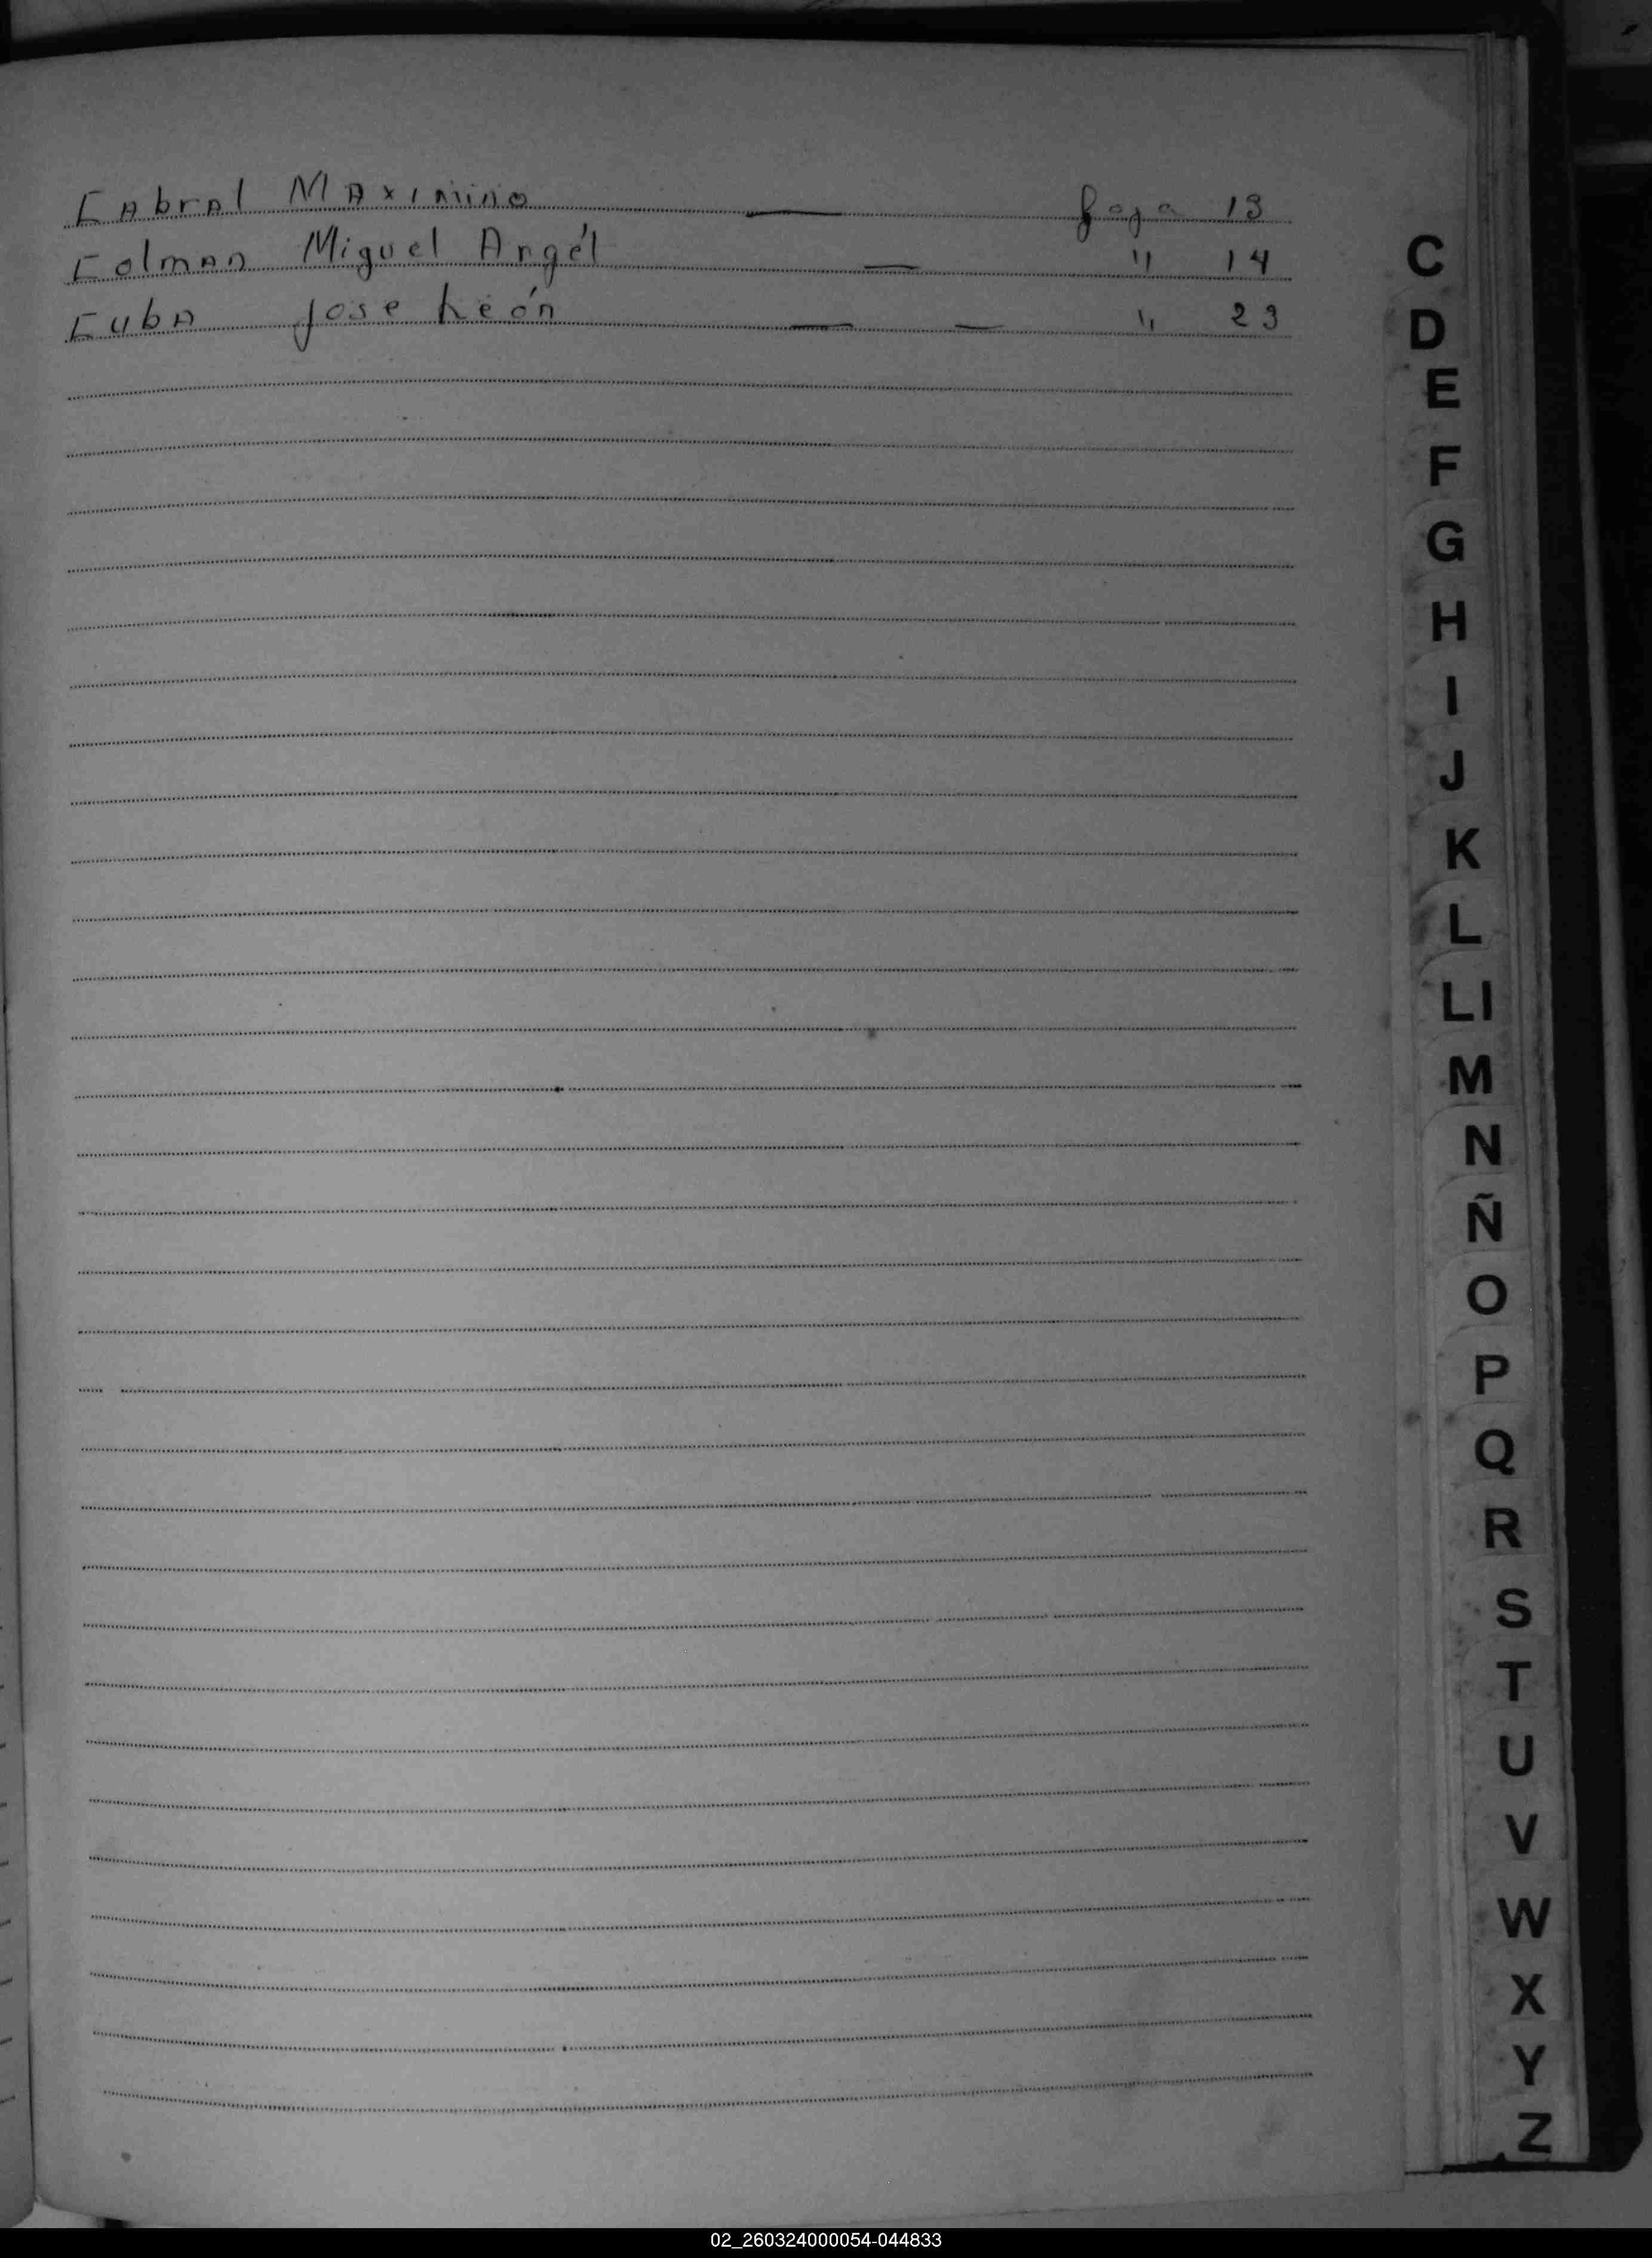 Cabral Maximino — foja 13
Colman Miguel Angél — " 14
Cuba Jose León — — " 23
C
D
E
F
G
H
I
J
K
L
Ll
M
N
Ñ
O
P
Q
R
S
T
U
V
W
X
Y
Z
02_260324000054-044833